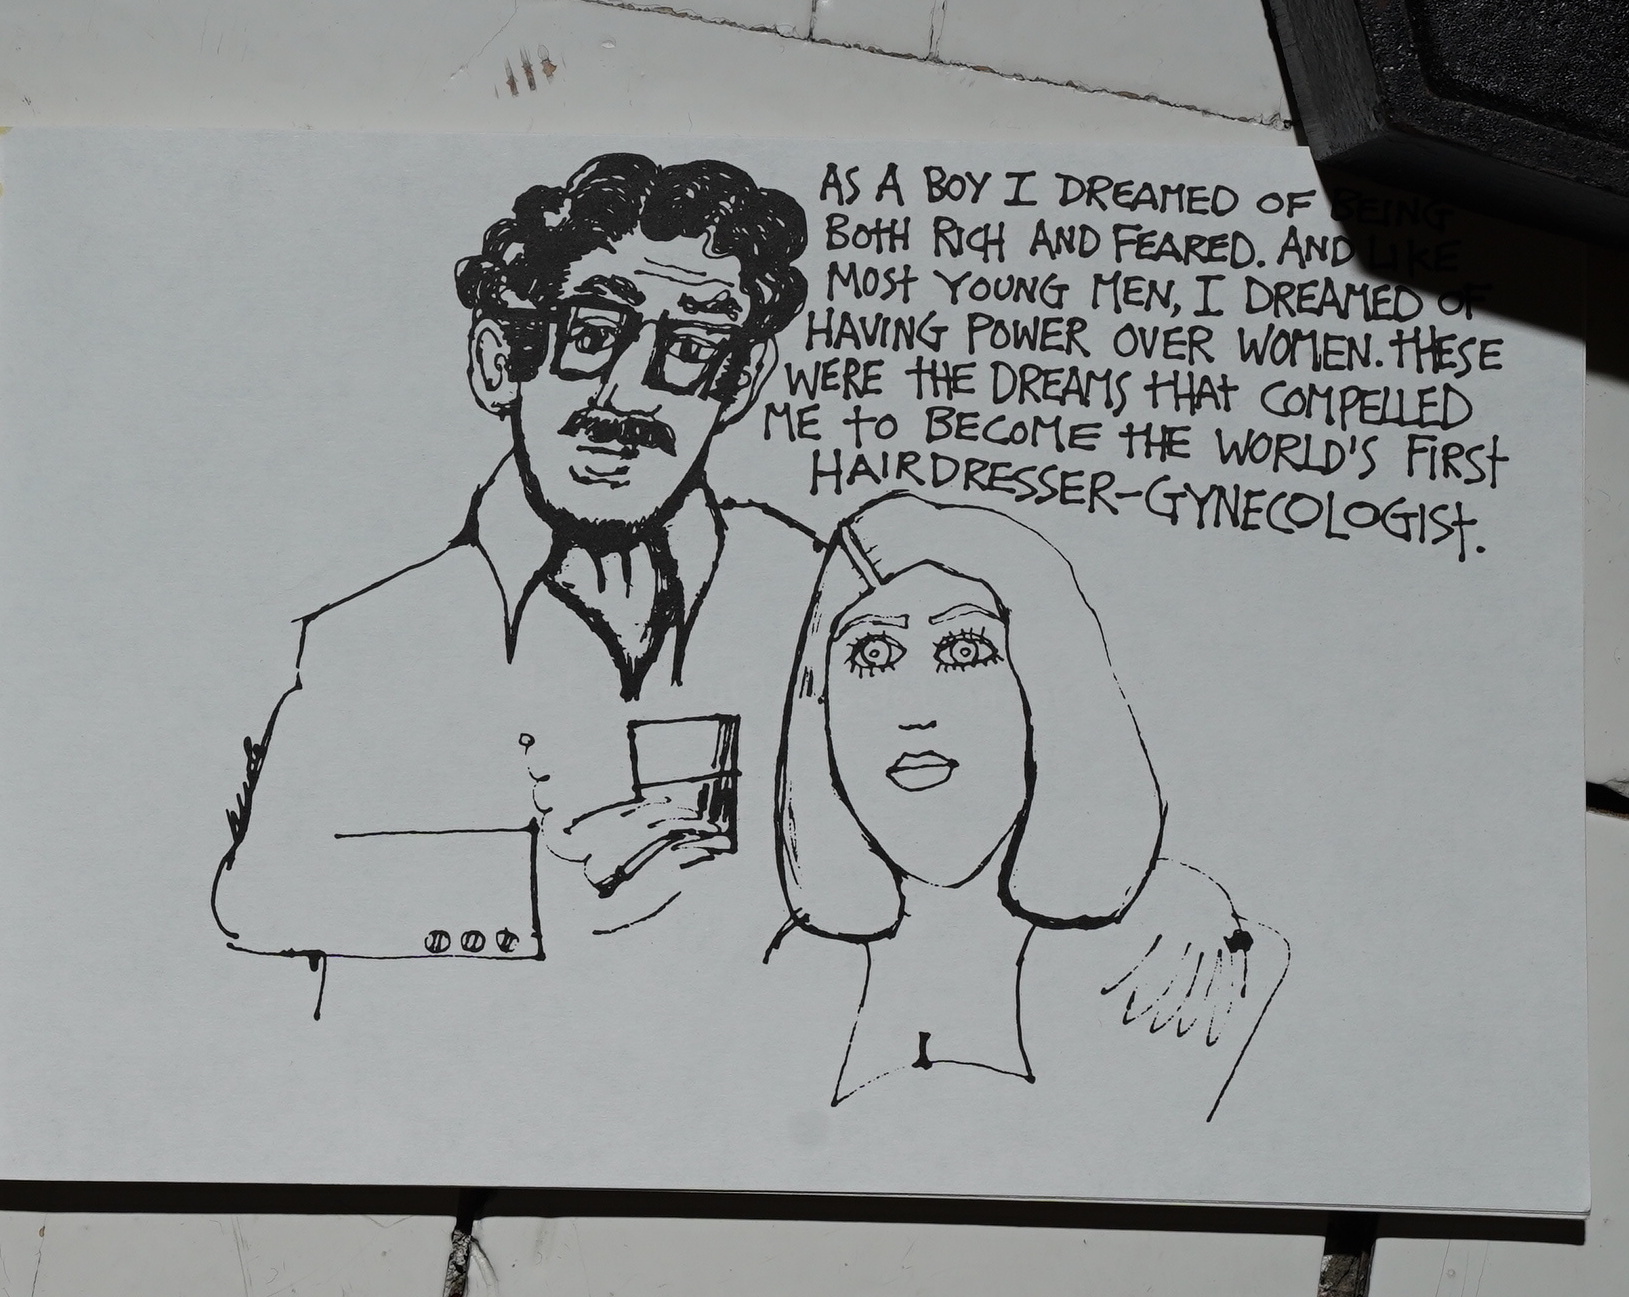 AS A BOY I DREAMED OF BEING
BOTH RICH AND FEARED. AND LIKE
MOST YOUNG MEN, I DREAMED OF
HAVING POWER OVER WOMEN. THESE
WERE THE DREAMS THAT COMPELLED
ME TO BECOME THE WORLD'S FIRST
HAIRDRESSER-GYNECOLOGIST.